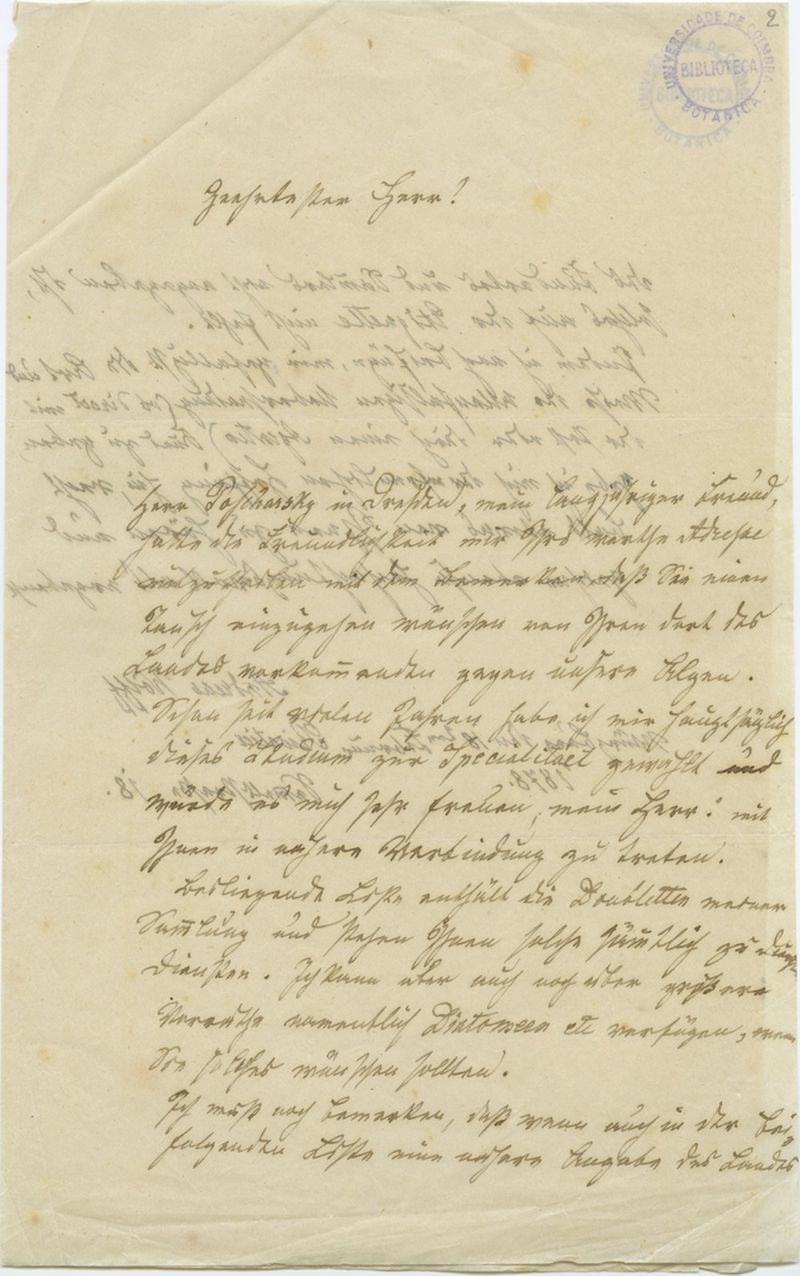 2
UNIVERSIDADE DE COIMBRA
BIBLIOTECA
BOTANICA
Geehrtester Herr!
Herr Poscharsky in Dresden, mein langjähriger Freund,
hatte die Freundlichkeit mir Ihre werthe Adresse
mitzutheilen mit dem Bemerken daß Sie einen
Tausch einzugehen wünschen von Ihren dort des
Landes vorkom̄enden gegen unsere Algen.
Schon seit vielen Jahren habe ich mir hauptsächlich
dieses Studium zur Specialitaet gewählt und
würde es mich sehr freuen, mein Herr! mit
Ihnen in nähere Verbindung zu treten.
Beiliegende Liste enthält die Doubletten meiner
Sam̄lung und stehen Ihnen solche sämtlich zu
Diensten. Ich kann aber auch noch über größere
Vorräthe namentlich Diatomeen etc verfügen, wenn
Sie solches wünschen sollten.
Ich muß noch bemerken, daß wenn auch in der bei-
folgenden Liste eine nähere Angabe des Landes